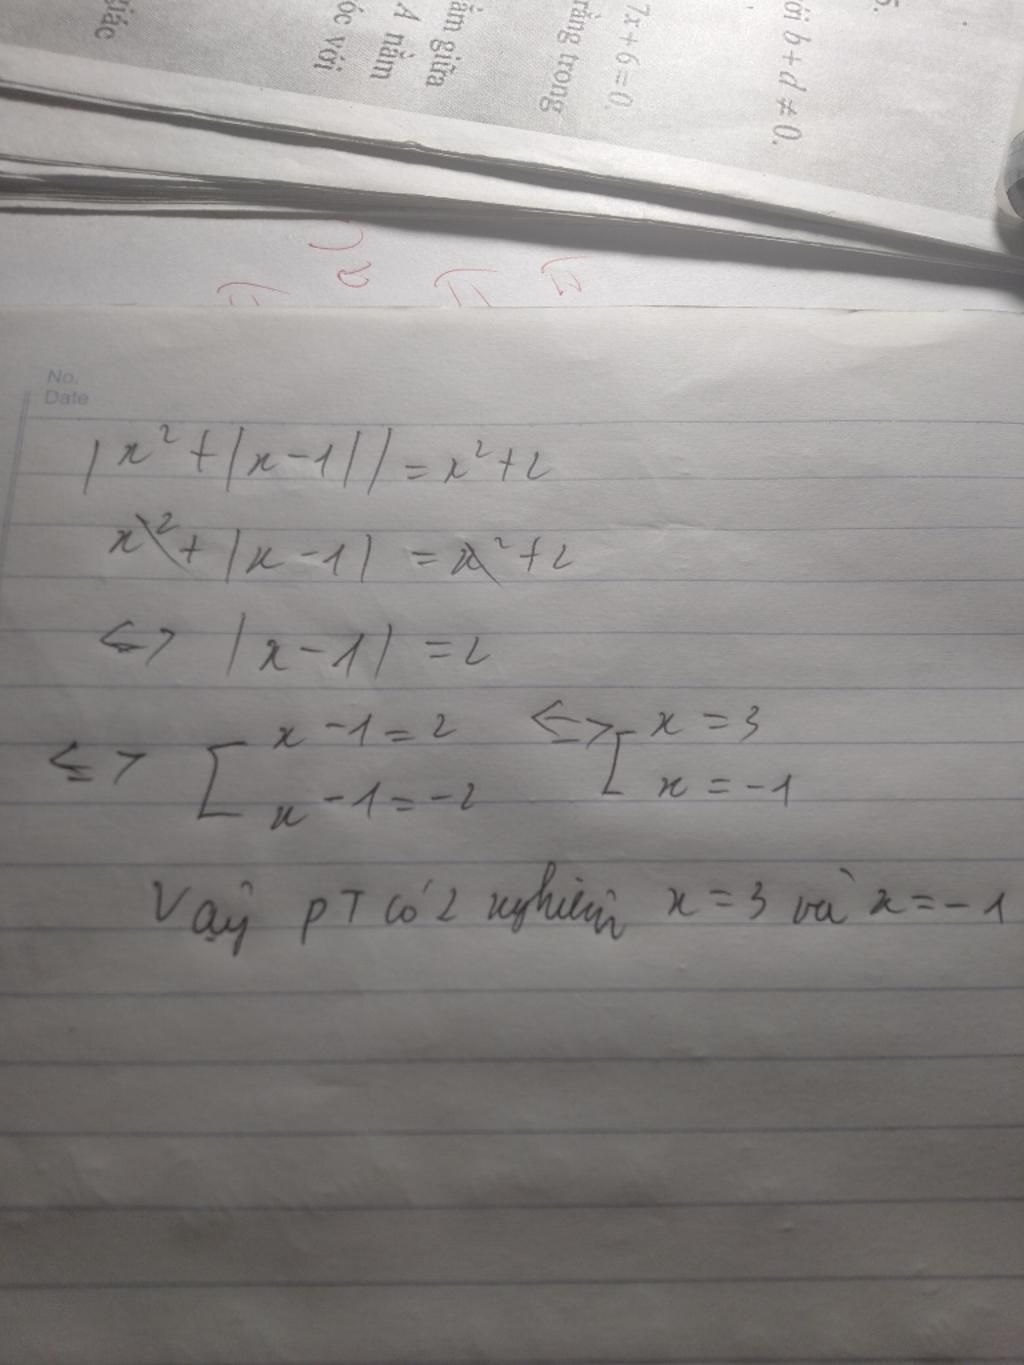 5.
với b + d ≠ 0.
7x + 6 = 0.
rằng trong
ằm giữa
A nằm
óc với
giác
No.
Date
|x² + |x - 1|| = x² + 2
x² + |x - 1| = x² + 2
<=> |x - 1| = 2
<=> [ x - 1 = 2 <=> [ x = 3
x - 1 = -2 x = -1
Vậy PT có 2 nghiệm x = 3 và x = -1